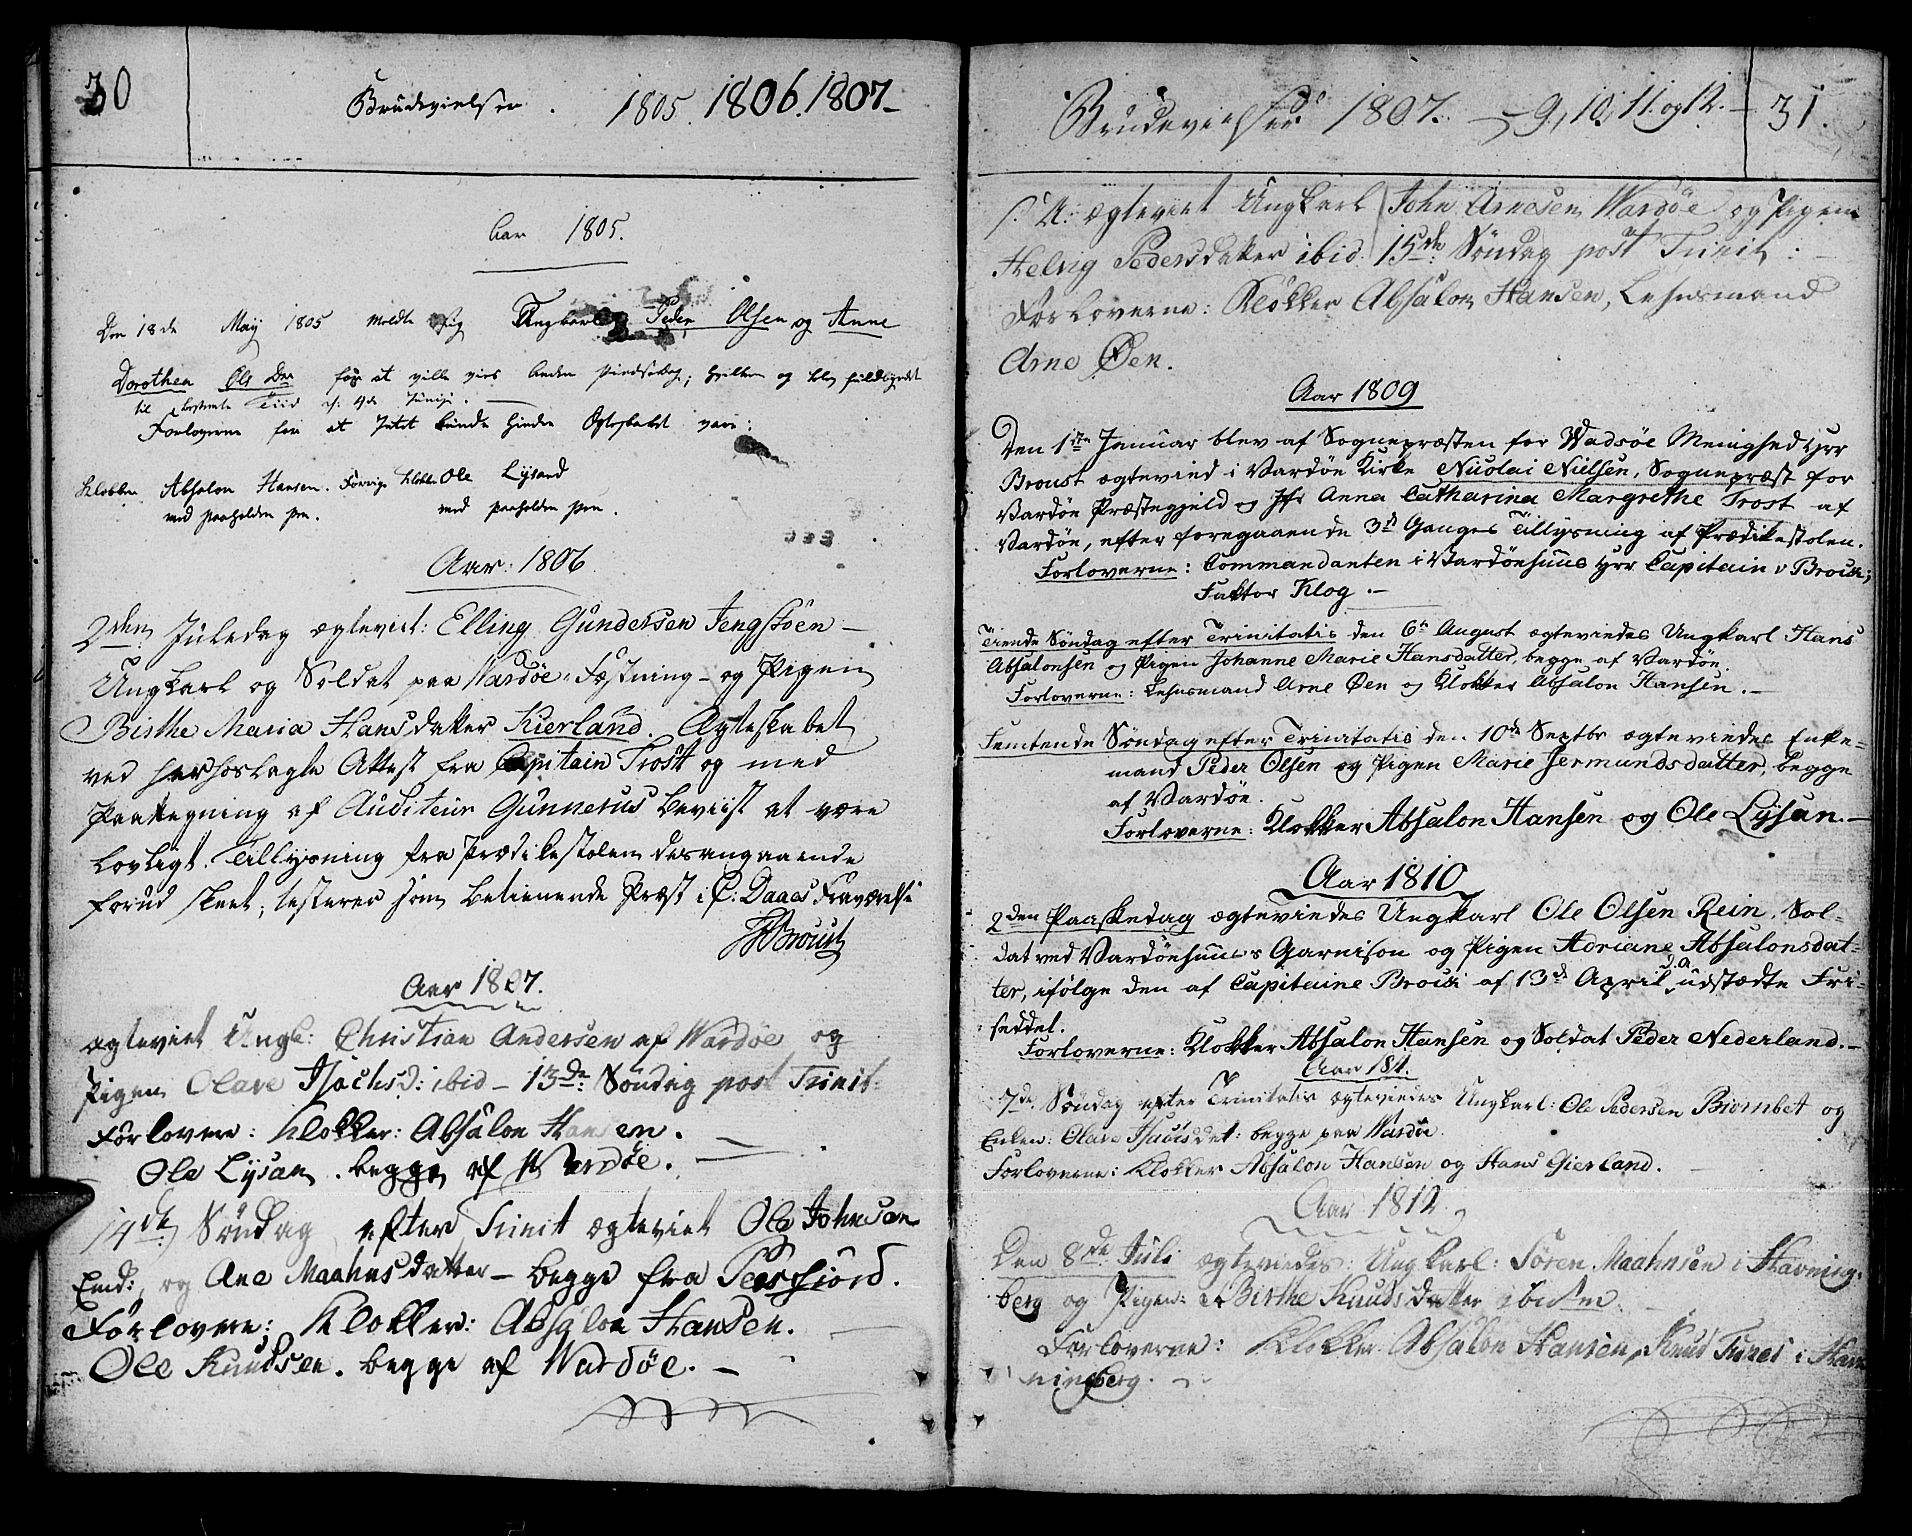 30
Brudevielser . 1805. 1806. 1807.
Aar 1805.
Den 18de May 1805 meldte sig Ungkarl Peder Olsen og Anne
Dorothea Ols Der for at ville vies anden Pindsedag; hvilken og blev fuldbyrdet
til bestemte Tiid d: 4de Junii.
Forloverne for at Intet kunde hindre Ægteskabet vare:
Klokker Absalon Hansen. Ole Lysand
med paaholden pen. med paaholden pen.
Aar: 1806.
2den Juledag ægteviet: Elling Gundersen Jengstöen –
Ungkarl og Soldat paa Wardöe Fæstning – og Pigen
Birthe Maria Hansdatter Kierland. Ægteskabet
ved herhoslagte Attest fra Capitain Trost og med
Paategning af Auditeur Gunnerus beviist at være
lovligt. Tillysning fra Prædikestolen desangaaende
forud skeet; testerer som betienende Præst i P: Daaes Fraværelse
Broust
Aar 1807.
ægteviet Ungk: Christian Andersen af Wardöe og
Pigen Olave Isachsd: ibid – 13de: Söndag post Trinit:
Forlovere: Klokker: Absalon Hansen.
Ole Lysan. begge af Wardöe.
14de Söndag efter Trinit ægteviet Ole Johnsen
Emd:, og Ane Maahnsdatter – begge fra Persfiord.
Forlovere: Klokker: Absalon Hansen.
Ole Knudsen. begge af Wardöe. –
Brudevielser 1807. – 9, 10, 11. og 12. – 31.
S: A: ægteviet Ungkarl John Arnesen Wardöe og Pigen
Helvig Pedersdatter ibid. 15de: Söndag post Trinit: –
Forloverne: Klokker Absalon Hansen, Lehnsmand
Arne Øen.
Aar 1809
Den 1ste Januar blev af Sognepræsten for Wadsöe Menighed Hrr
Broust ægteviet i Vardöe Kirke Nicolai Nielsen, Sognepræst for
Vardöe Præstegjeld og Jfr Anna Catharina Margrethe Trost af
Vardöe, efter foregaaende 3de Ganges Tillysning af Prædikestolen.
Forloverne: Commandanten i Vardöehuus Hrr Capitain v Brouk;
Faktor Klog. –
Tiende Söndag efter Trinitatis den 6te August ægteviedes Ungkarl Hans
Absalonsen og Pigen Johanne Marie Hansdatter, begge af Vardöe.
Forloverne: Lehnsmand Arne Øen og Klokker Absalon Hansen. –
Femtende Söndag efter Trinitatis den 10de Septbr ægteviedes Enke-
mand Peder Olsen og Pigen Marie Jermundsdatter, begge
af Vardöe.
Forloverne: Klokker Absalon Hansen og Ole Lysan. –
Aar 1810
2den Paaskedag ægteviedes Ungkarl Ole Olsen Rein. Sol-
dat ved Vardöehuus's Garnison og Pigen Adriane Absalonsdat-
ter, ifölge den af Capitaine Brouk af 13de April d.A udstædte Fri-
seddel.
Forloverne: Klokker Absalon Hansen og Soldat Peder Nederland. –
Aar 1811.
7de. Söndag efter Trinitatis ægteviedes Ungkarl: Ole Pedersen Biombet og
Enken: Olave Isaacsdet: begge paa Wardöe.
Forloverne: Klokker Absalon Hansen og Hans Gierland.
Aar 1812.
Den 8de Juli ægteviedes: Ungkarl: Sören Maahnsen i Havning-
berg og Pigen: Birthe Knudsdatter ibidem.
Forloverne: Klokker Absalon Hansen, Knud Tunes i Hav
ningberg.